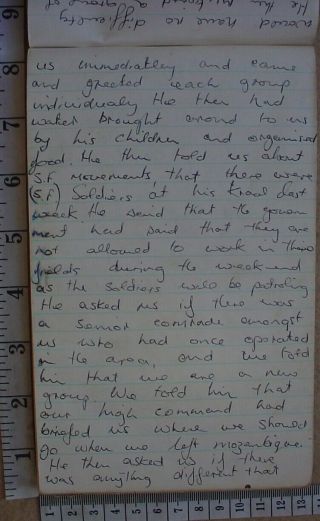 would have no difficulty
us immediatley and came
and greeted each group
individualy He then had
water brought around to us
by his children and organised
food. He then told us about
S.F. movements, that there were
(S.F) Soldiers at his Kraal last
week. He said that the govern
ment had said that they are
not allowed to work in there
fields during the weekend
as the soldiers will be patroling
He asked us if there was
a senior comrade amongst
us who had once oporated
in the area, and we told
him that we are a new
group. We told him that
our high command had
briefed us where we should
go when we left mozambique.
He then asked us if there
was anything different that